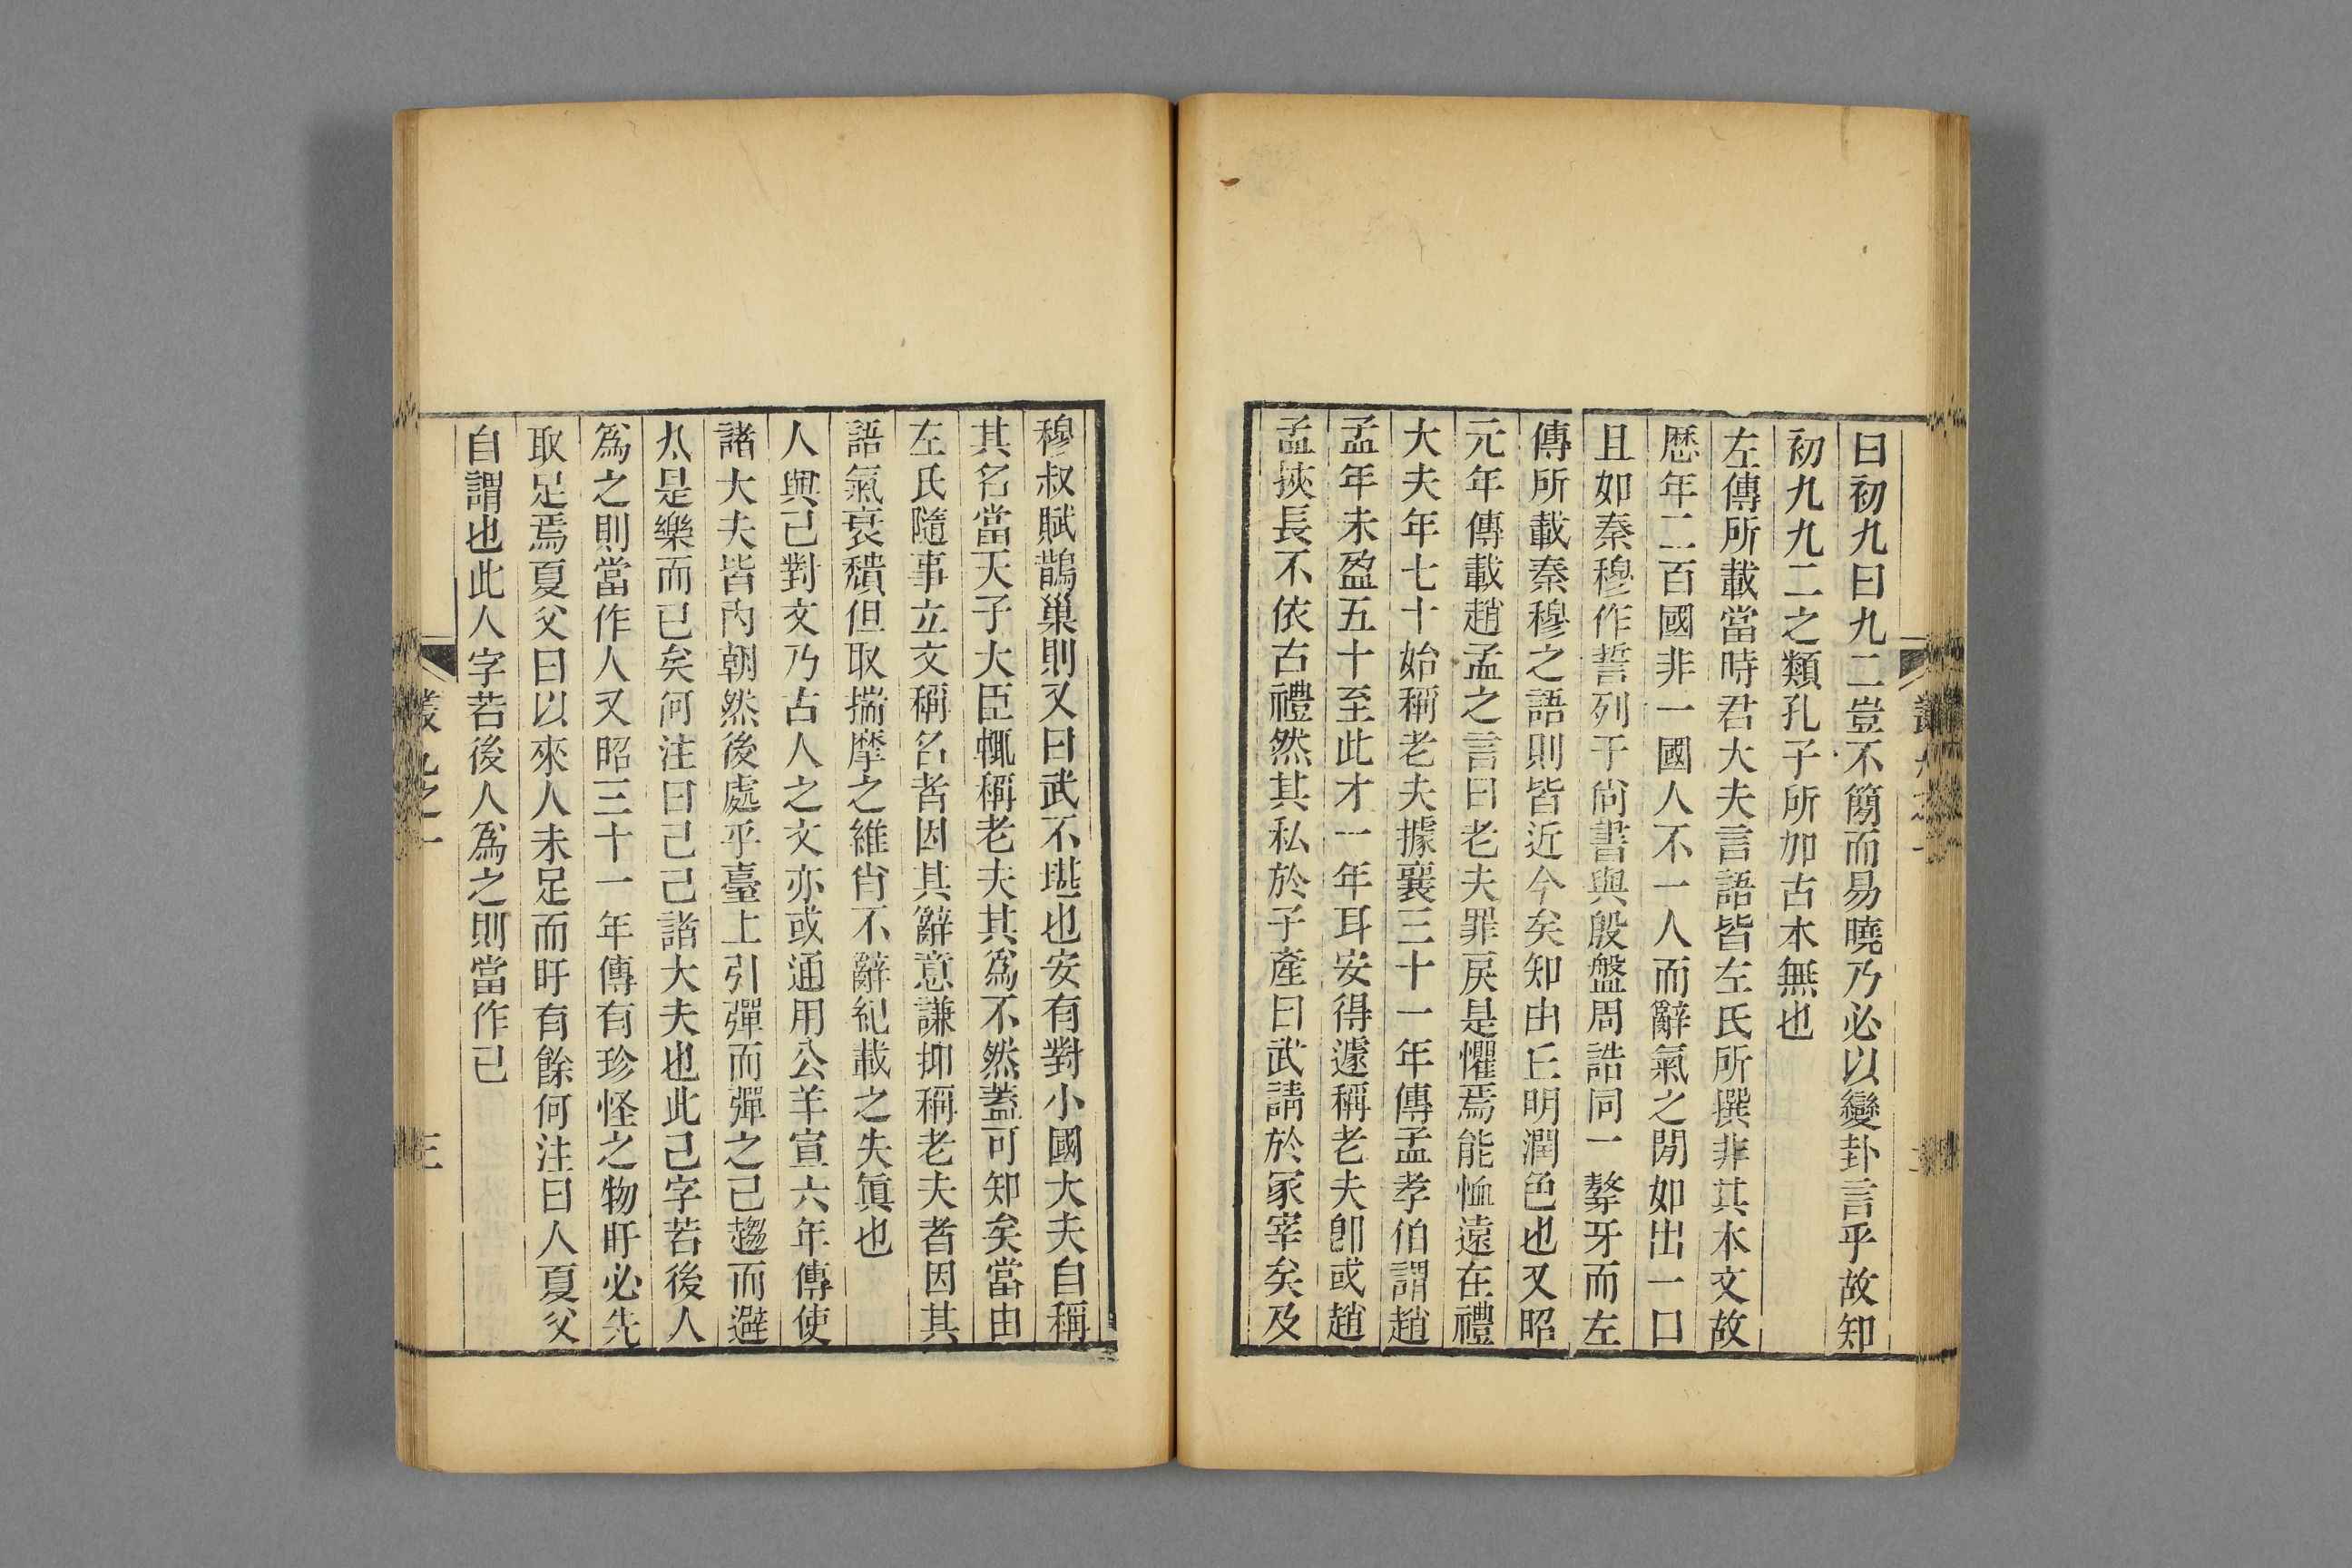 曰初九曰九二豈不簡而易曉乃必以變卦言乎故知
初九九二之類孔子所加古本無也
左傳所載當時君大夫言語皆左氏所撰非其本文故
歷年二百國非一國人不一人而辭氣之閒如出一口
且如秦穆作誓列于尙書與殷盤周誥同一聱牙而左
傳所載秦穆之語則皆近今矣知由丘明潤色也又昭
元年傳載趙孟之言曰老夫罪戾是懼焉能恤遠在禮
大夫年七十始稱老夫據襄三十一年傳孟孝伯謂趙
孟年未盈五十至此才一年耳安得遽稱老夫卽或趙
孟挾長不依古禮然其私於子產曰武請於冢宰矣及
穆叔賦鵲巢則又曰武不堪也安有對小國大夫自稱
其名當天子大臣輒稱老夫其爲不然蓋可知矣當由
左氏隨事立文稱名者因其辭意謙抑稱老夫者因其
語氣衰穨但取揣摩之維肖不辭紀載之失眞也
人與己對文乃古人之文亦或通用公羊宣六年傳使
諸大夫皆內朝然後處乎臺上引彈而彈之己趨而避
丸是樂而已矣何注曰己己諸大夫也此己字若後人
爲之則當作人又昭三十一年傳有珍怪之物盱必先
取足焉夏父曰以來人未足而盱有餘何注曰人夏父
自謂也此人字若後人爲之則當作已
叢九之一
三